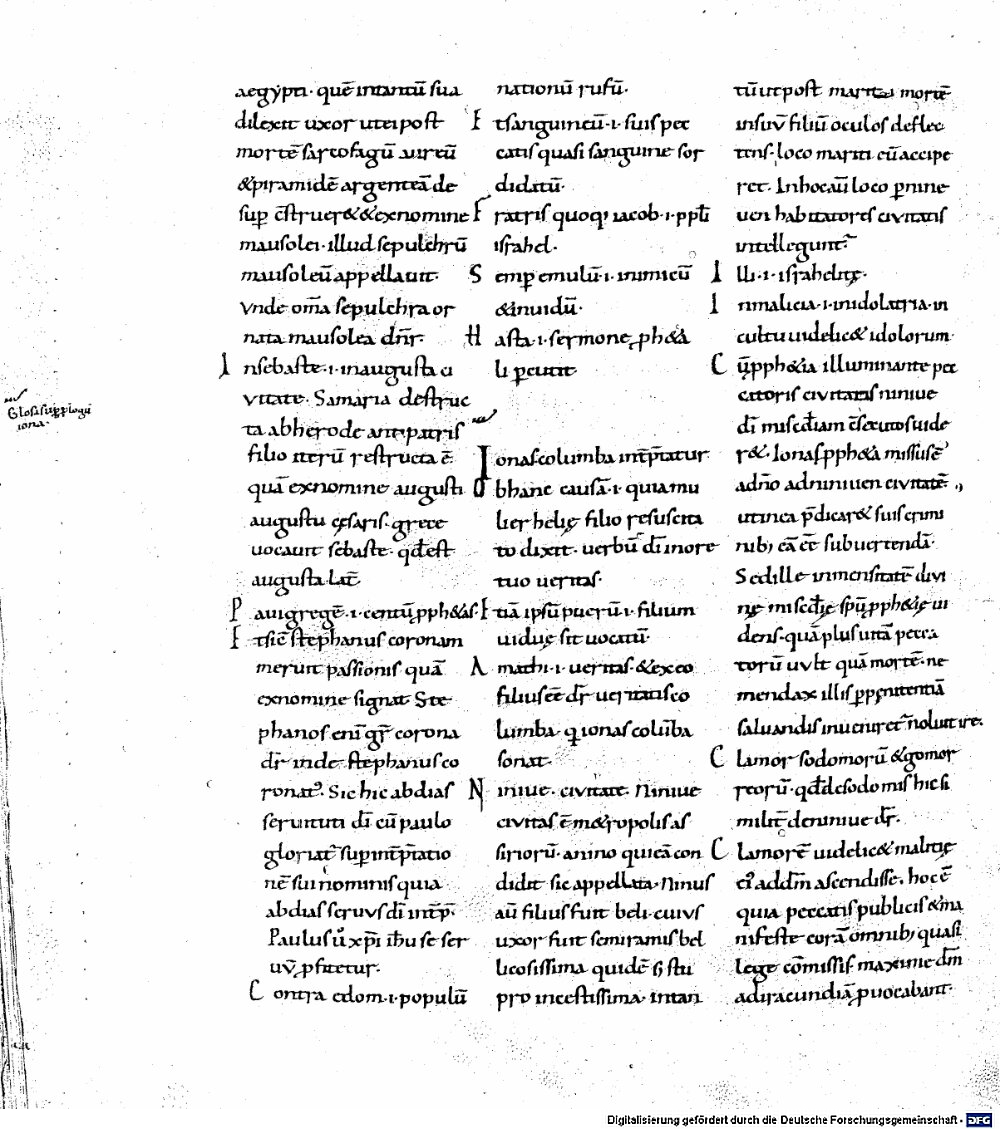 Glose sup plogū
iona·
aegypti· quē intantū sua
dilexit uxor utei post
mortē sarcofagū aureū
&piramidē argenteā de
sup ēstruer& &exnomine
mausolei· illud sepulchrū
mausoleū appellauit·
Vnde om̄a sepulchra or
nata mausolea dn̄r·
I nsebaste·i·inaugusta ci
uitate· Samaria destruc
ta abherode antipatris
filio iterū restructa ē·
quā exnomine augusti
augustu cęsaris· grece
uocauit sebaste· qđest
augusta lat̄·
P auigregē·i·centū pph&as·
E tsic̄ stephanus coronam
meruit passionis quā
exnomine signat Ste
phanos eni gr̄ corona
dr̄ inde stephanus co
ronat᷒· Sic hic abdias
seruituti dī cū paulo
gloriat᷒ sup int̄p̄tatio
nē sui nominis quia
abdias seruus dī int̄p̄·
Paulus ū xp̄i ih̄u se ser
uū pfitetur·
C ontra edom·i·populū
nationū rufū·
E tsanguineū·i·suis pec
catis quasi sanguine sor
diditū·
F ratris quoq; iacob·i·ppłi
israhel·
S emp emulū·i·inimicū
&inuidū·
H asta·i·sermone pph&a
li percutit·
Ionas columba int̄p̄tatur
O bhanc causā·i·quia mu
lier helię filio resuscita
to dixit· uerbū dī inore
tuo ueritas·
E tiā ipsū puerū·i·filium
uiduę sit uocatū·
A mathi·i·ueritas·&exeo
filius eē dr̄ ueritatis co
lumba· q ionas colūba
sonat·
N iniue· ciuitate· Niniue
ciuitas ē m&ropolis as
siriorū· a nino qui eā con
didit sic appellata· Ninus
aū filius fuit beli· cuius
uxor fuit semiramis bel
licosissima quidē s; stu
pro incestissima· intan
tū ut post mariti mortē
insuū filiū oculos deflec
tens· loco mariti eū accipe
ret· Inhoc aū loco p nine
uen habitatores ciuitatis
intellegunt᷒·
I lli·i·israhelitę·
I nmalicia·i·inidolatria·in
cultu uidelic& idolorum·
C ū pph&ia illuminante pec
catoris ciuitatis niniue
dī misedīam c̄secutos uide
r&· Ionas pph&a missus ē
adn̄o adniniuen ciuitatē·,
ut inea p̄dicar& suis crimi
nib; eā eē subuertendā·
Sed ille inmensitatē diui
nę misedię spū pph&ię ui
dens· quā plus uitā pecca
torū uult quā mortē· ne
mendax illis p pęnitentiā
saluandis inueniret᷒ noluit ire·
C lamor sodomorū &gomor
reorū· qđ desodomis hic si
milit̄ deniniue dr̄·
C lamorē uidelic& malitię
ei᷒ addm̄ ascendisse· hoc ē
quia peccatis publicis &ma
nifeste corā omnib; quasi
lege cōmissis maxime dm̄
adiracundiā puocabant·
Digitalisierung gefördert durch die Deutsche Forschungsgemeinschaft - DFG